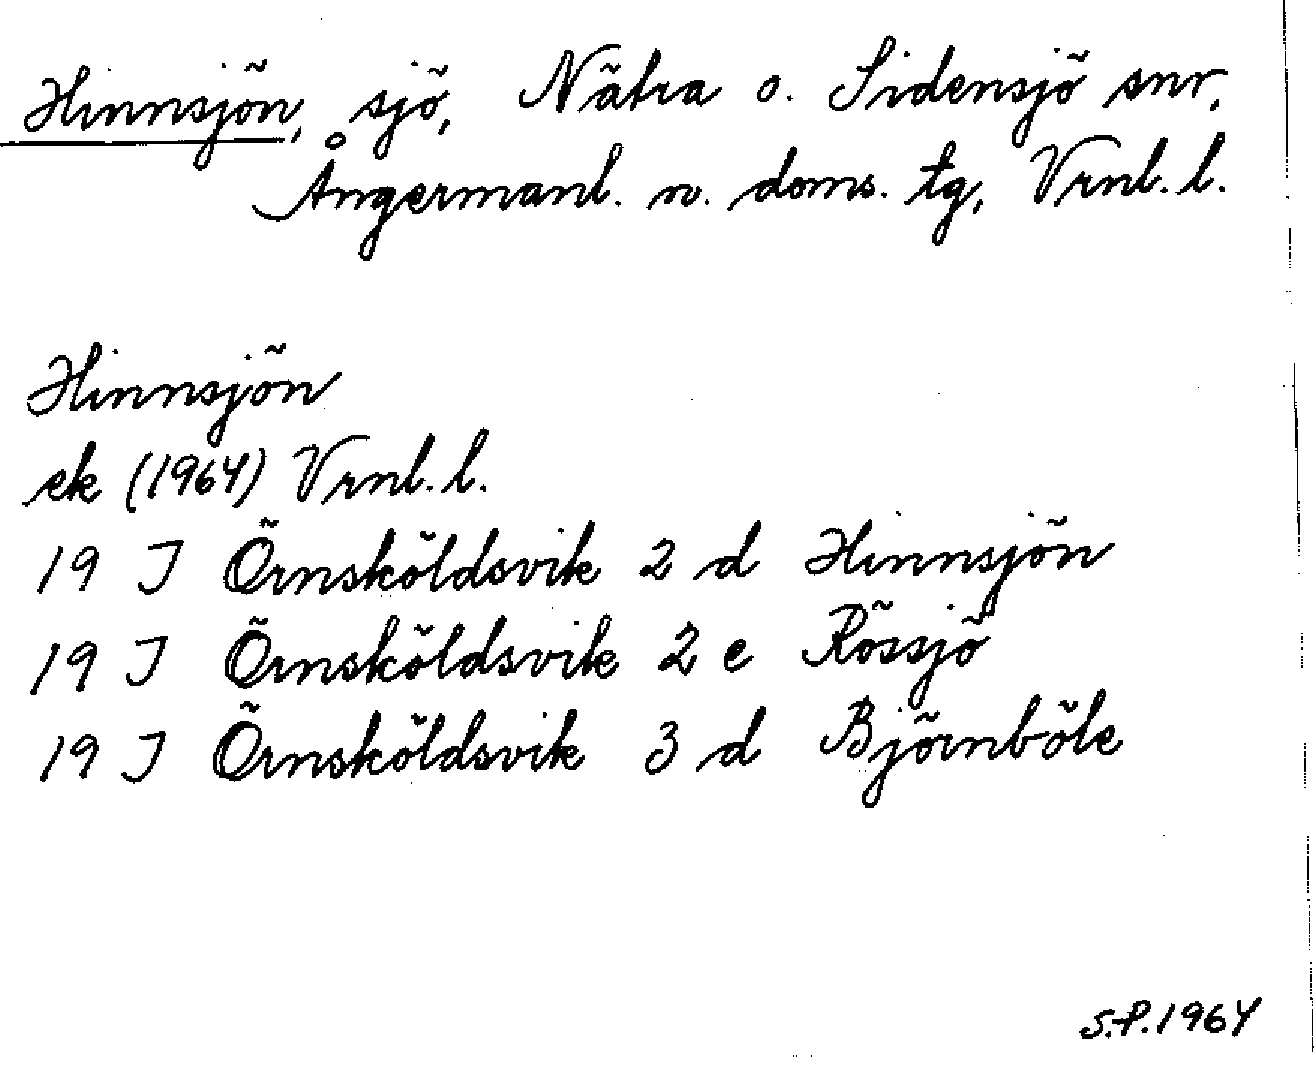 Hinnsjön, sjö, Nätra o. Sidensjö snr,
Ångermanl. n. doms. tg, Vrnl. l.
Hinnsjön
ek (1964) Vrnl. l.
19 J Örnsköldsvik 2 d Hinnsjön
19 J Örnsköldsvik 2 e Rössjö
19 J Örnsköldsvik 3 d Björnböle
S.P. 1964